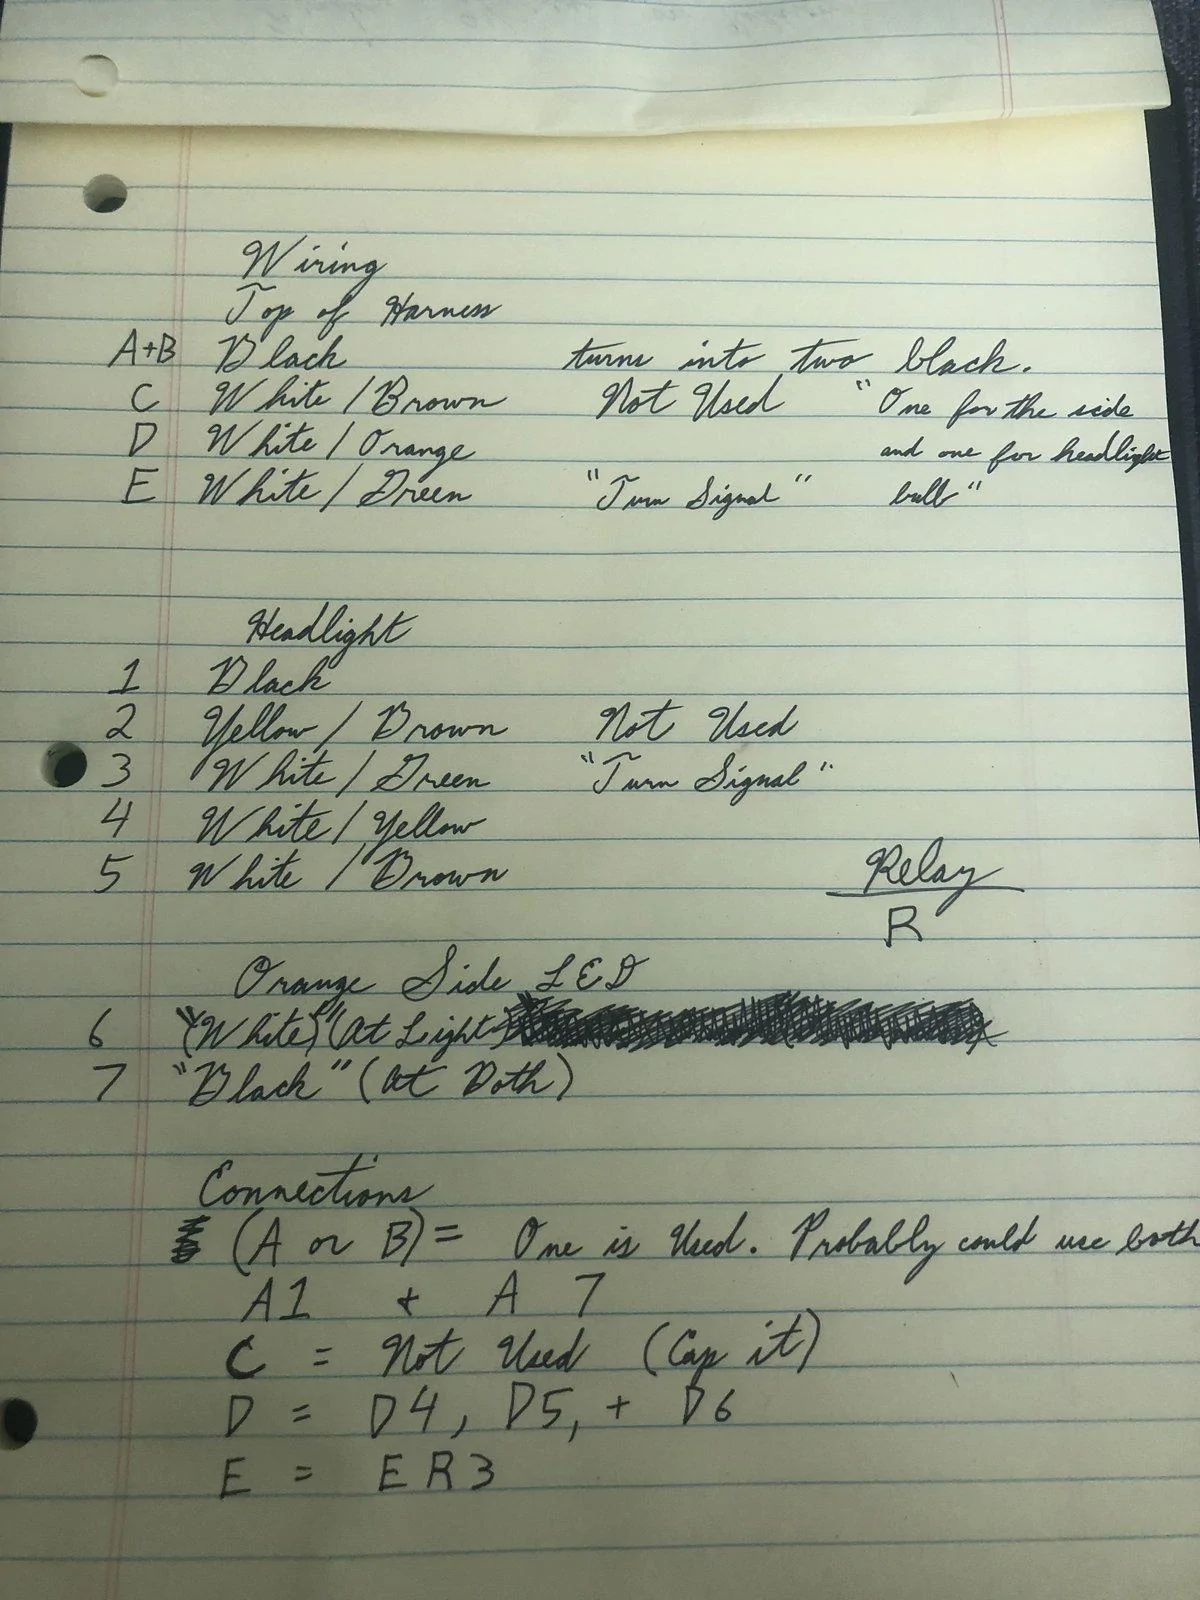 Wiring
Top of Harness
A+B Black turns into two black.
C White / Brown Not Used "One for the side
D White / Orange and one for headlight
E White / Green "Turn Signal" bulb"
Headlight
1 Black
2 Yellow / Brown Not Used
3 White / Green "Turn Signal"
4 White / Yellow
5 White / Brown
Relay
R
Orange Side LED
6 "(White)" (At Light)
7 "Black" (At Both)
Connections
(A or B) = One is Used. Probably could use both
A1 + A 7
C = Not Used (Cap it)
D = D4, D5, + D6
E = E R 3